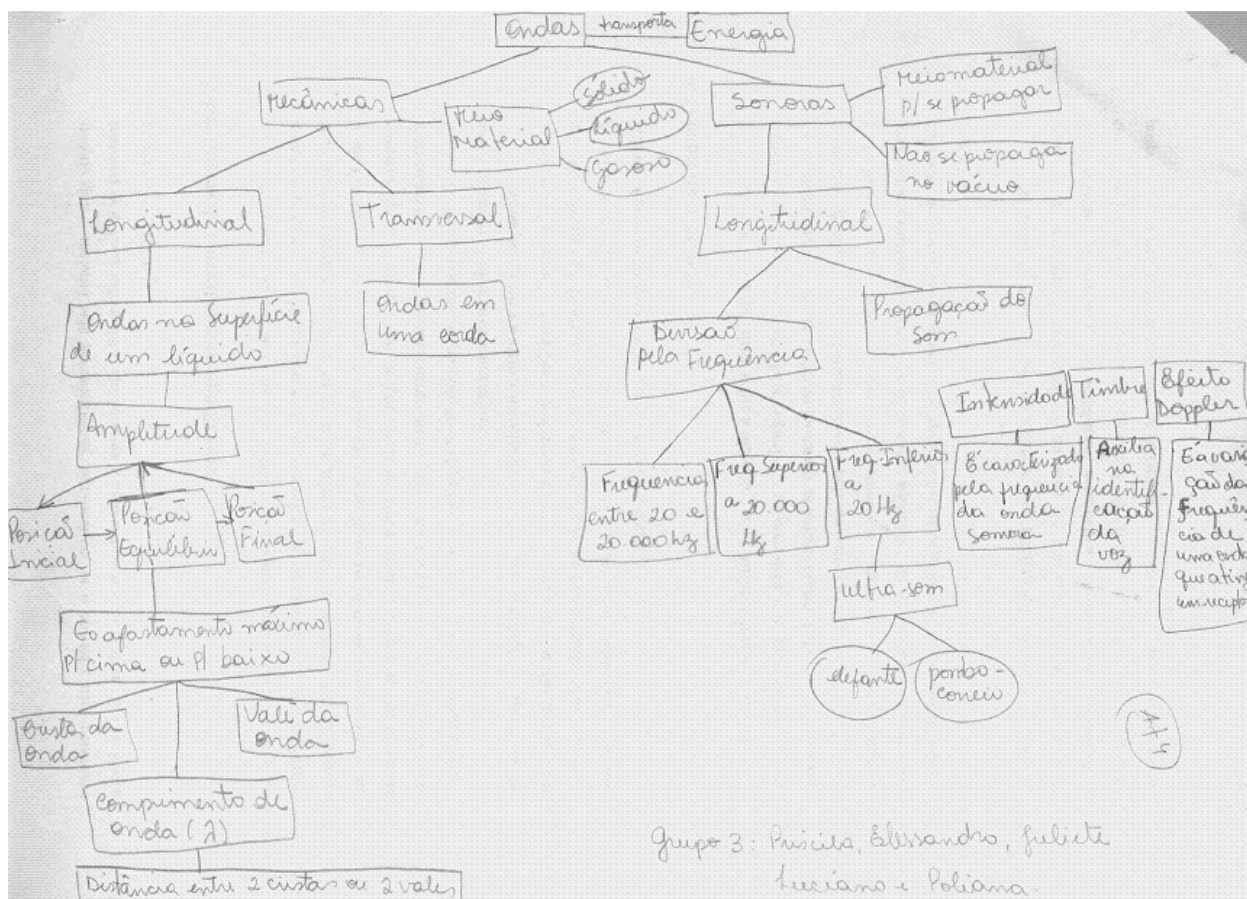 Ondas transporta Energia
Mecânicas
Meio
Material
Sólido
Líquido
Gasoso
Sonoras
Meio material
p/ se propagar
Não se propaga
no vácuo
Longitudinal
Transversal
Longitudinal
Ondas na Superfície
de um líquido
Ondas em
uma corda
Divisão
pela Frequência
Propagação do
Som
Amplitude
Posição
Inicial
Posição
Equilíbrio
Posição
Final
Frequencia
entre 20 e
20.000 hz
Freq. Superior
a 20.000
Hz
Freq. Inferior
a
20 Hz
Intensidade
É caracterizado
pela frequencia
da onda
sonora
Timbre
Auxilia
na
identifi-
cação
da
voz
Efeito
Doppler
É a varia
ção da
frequên-
cia de
uma onda
que ating
um recept
ultra-som
elefante
pombo-
correio
É o afastamento máximo
p/ cima ou p/ baixo
Crista da
onda
Vale da
onda
Comprimento de
onda (λ)
Distância entre 2 cristas ou 2 vales
Grupo 3: Priscila, Elessandro, Juliete
Luciano e Poliana.